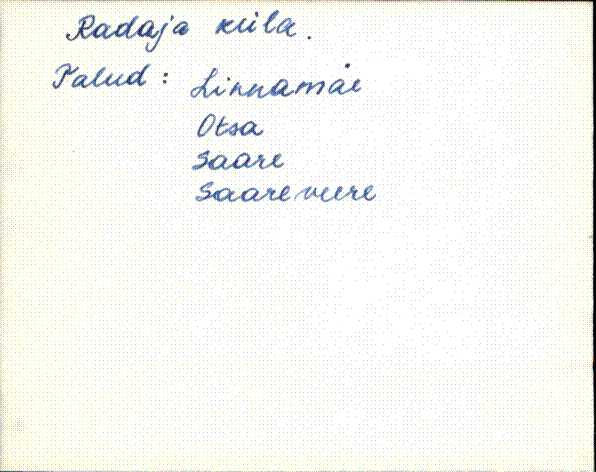 Radaja küla.
Talud: Linnamäe
Otsa
Saare
Saareveere